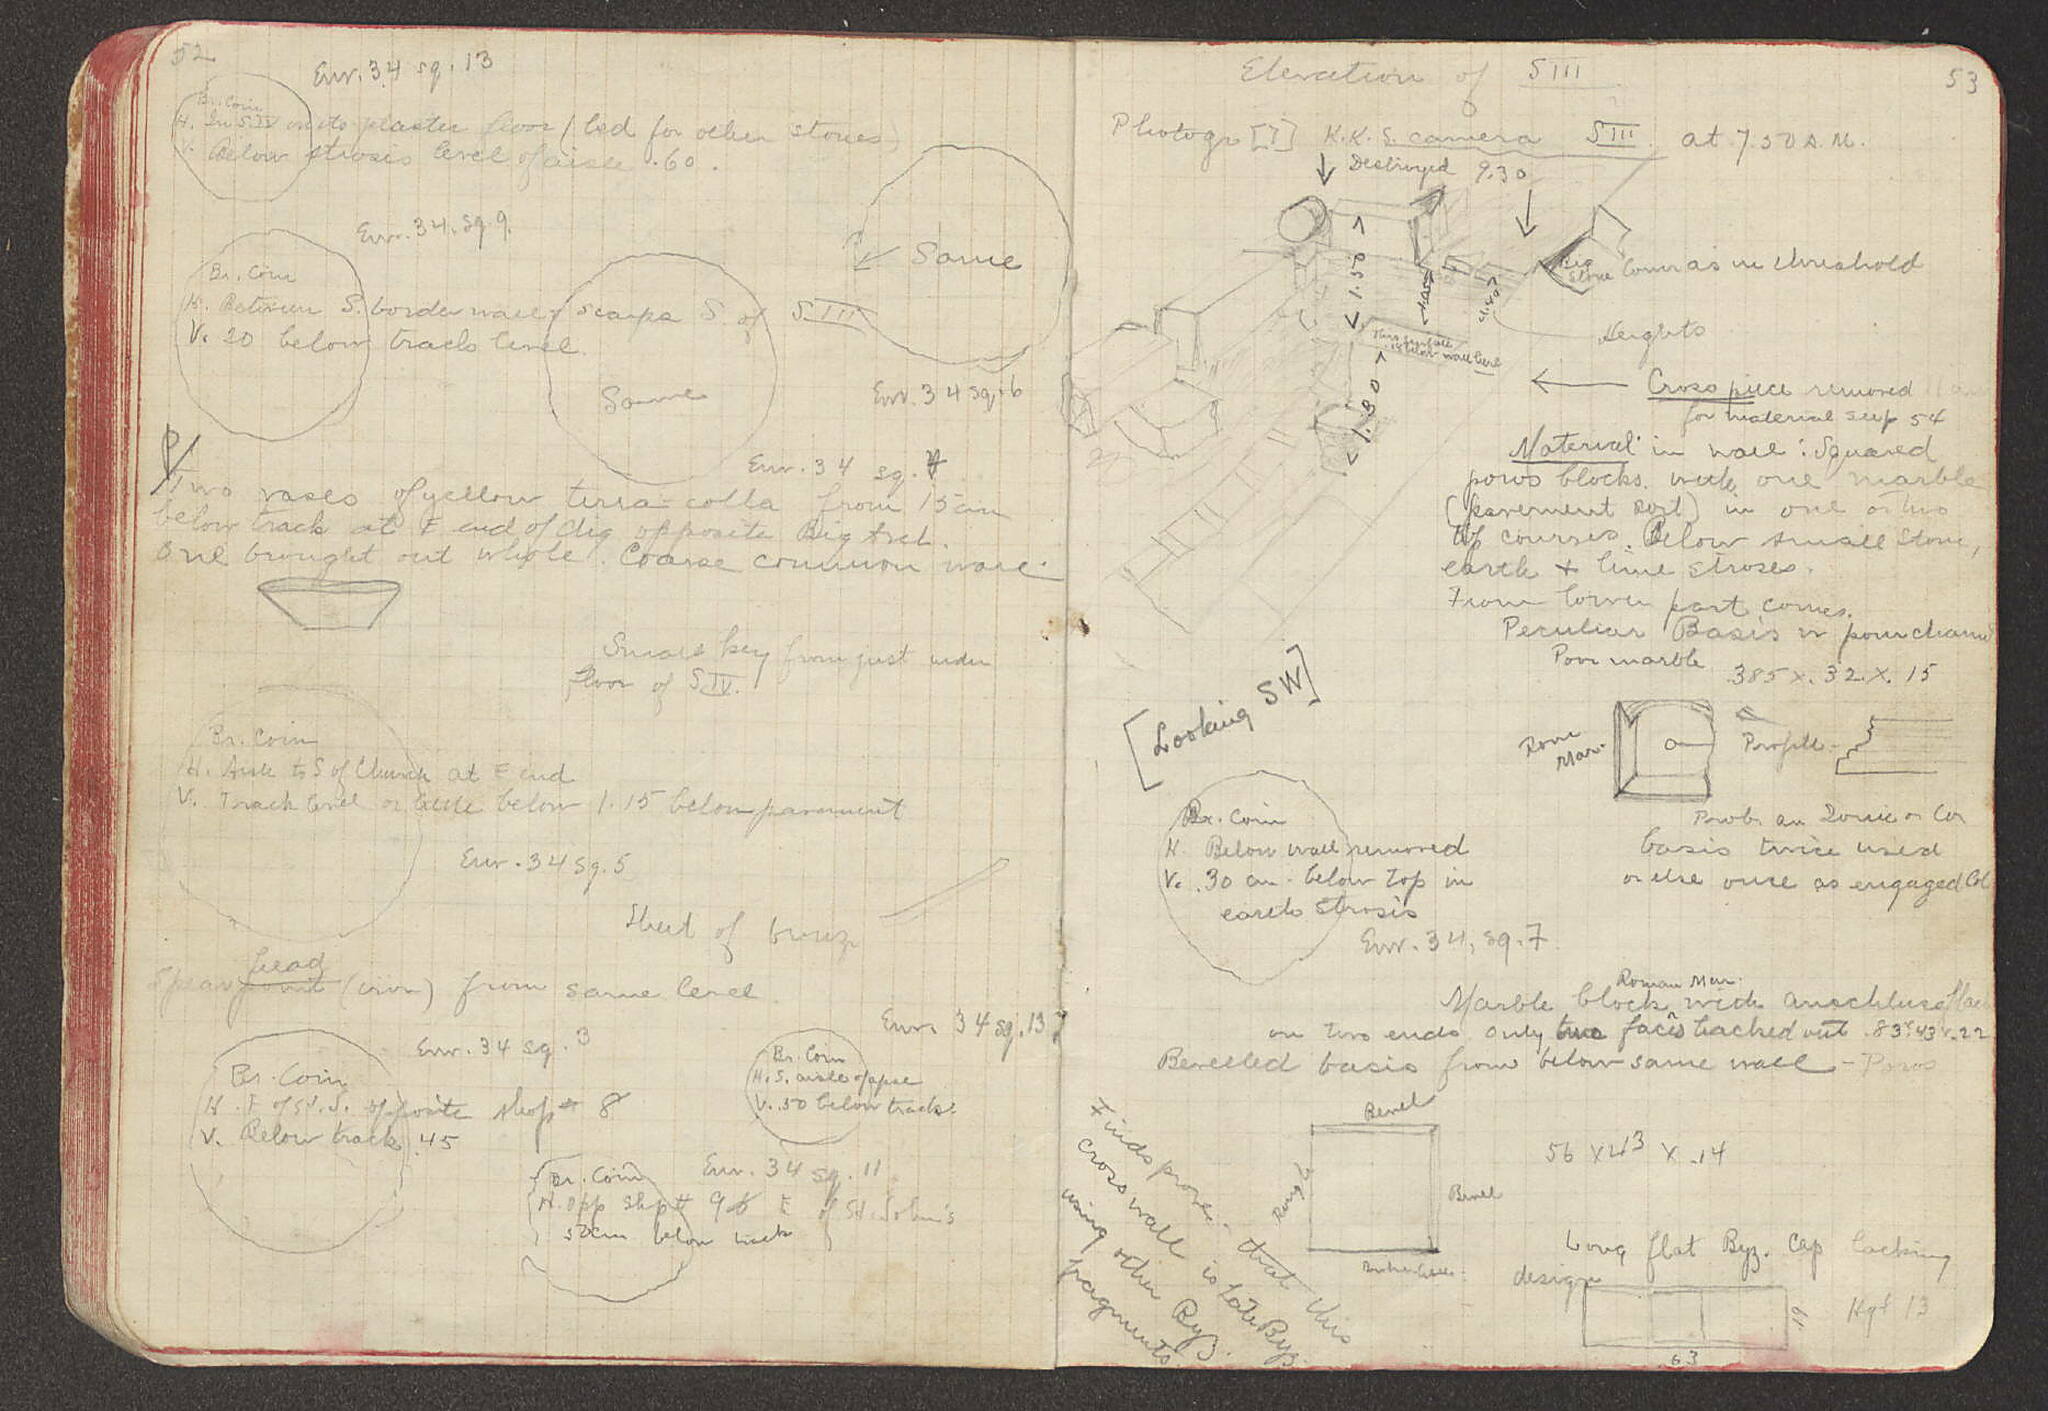 52
Env. 34 sq. 13
Br. Coin
H. In S IV on its plaster floor (bed for other stones)
V. Below strosis level of aisle .60.
Env. 34. sq. 9.
Same
Br. Coin
H. Between S. border wall & scarps S. of S III
V. 20 below track level.
Same
Env. 34 sq. 6
Env. 34 sq. 7
Two vases of yellow terra-cotta from 15 cm
below track at E end of dig opposite Big
One brought out whole. Coarse common ware.
Small key from just under
floor of S IV.
Br. Coin
H. Aisle to S of Church at E end
V. Track level or little below 1.15 below pavement
Env. 34 sq. 5
Sheet of bronze
head
Spear point (iron) from same level
Env. 34 sq. 13
Env. 34 sq. 3
Br. Coin
H. E of St. J. opposite shop # 8
V. Below track .45
Br. Coin
H. S. aisle of apse
V. .50 below track.
Env. 34 sq. 11
Br. Coin
H. Opp shp # 9 E of St. John's
50cm below track
53
Elevation of S III
Photogr [7] K.K.S. camera S III at 7.50 A.M.
Destroyed 9.30
1.50
Big
Stone Comes as in threshold
Heights
This surface
is below wall level
1.30
Cross piece removed
for material see p 54
Material in wall: Squared
poros blocks with one marble
(pavement sort) in one or two
top courses. Below small stone,
earth & lime stroses.
From lower part comes.
Peculiar Basis in
marble .385 x .32 x .15
Mar.
Profile
Prob. an Ionic or Cor
basis twice used
or else once as engaged Col
[Looking SW]
Br. Coin
H. Below wall removed
V. .30 cm. below top in
earth strosis
Env. 34, sq. 7.
Roman Mar.
Marble block with anschluss
on two ends only two faces hacked out .83 x 43 x .22
Bevelled basis from below same wall - Poros
Bevel
Rough
Bevel
56 x 43 x .14
Finds prove: that this
cross wall is late Byz.
using other Byz.
fragments.
Long flat Byz. Cap lacking
design
Hgt 13
.63